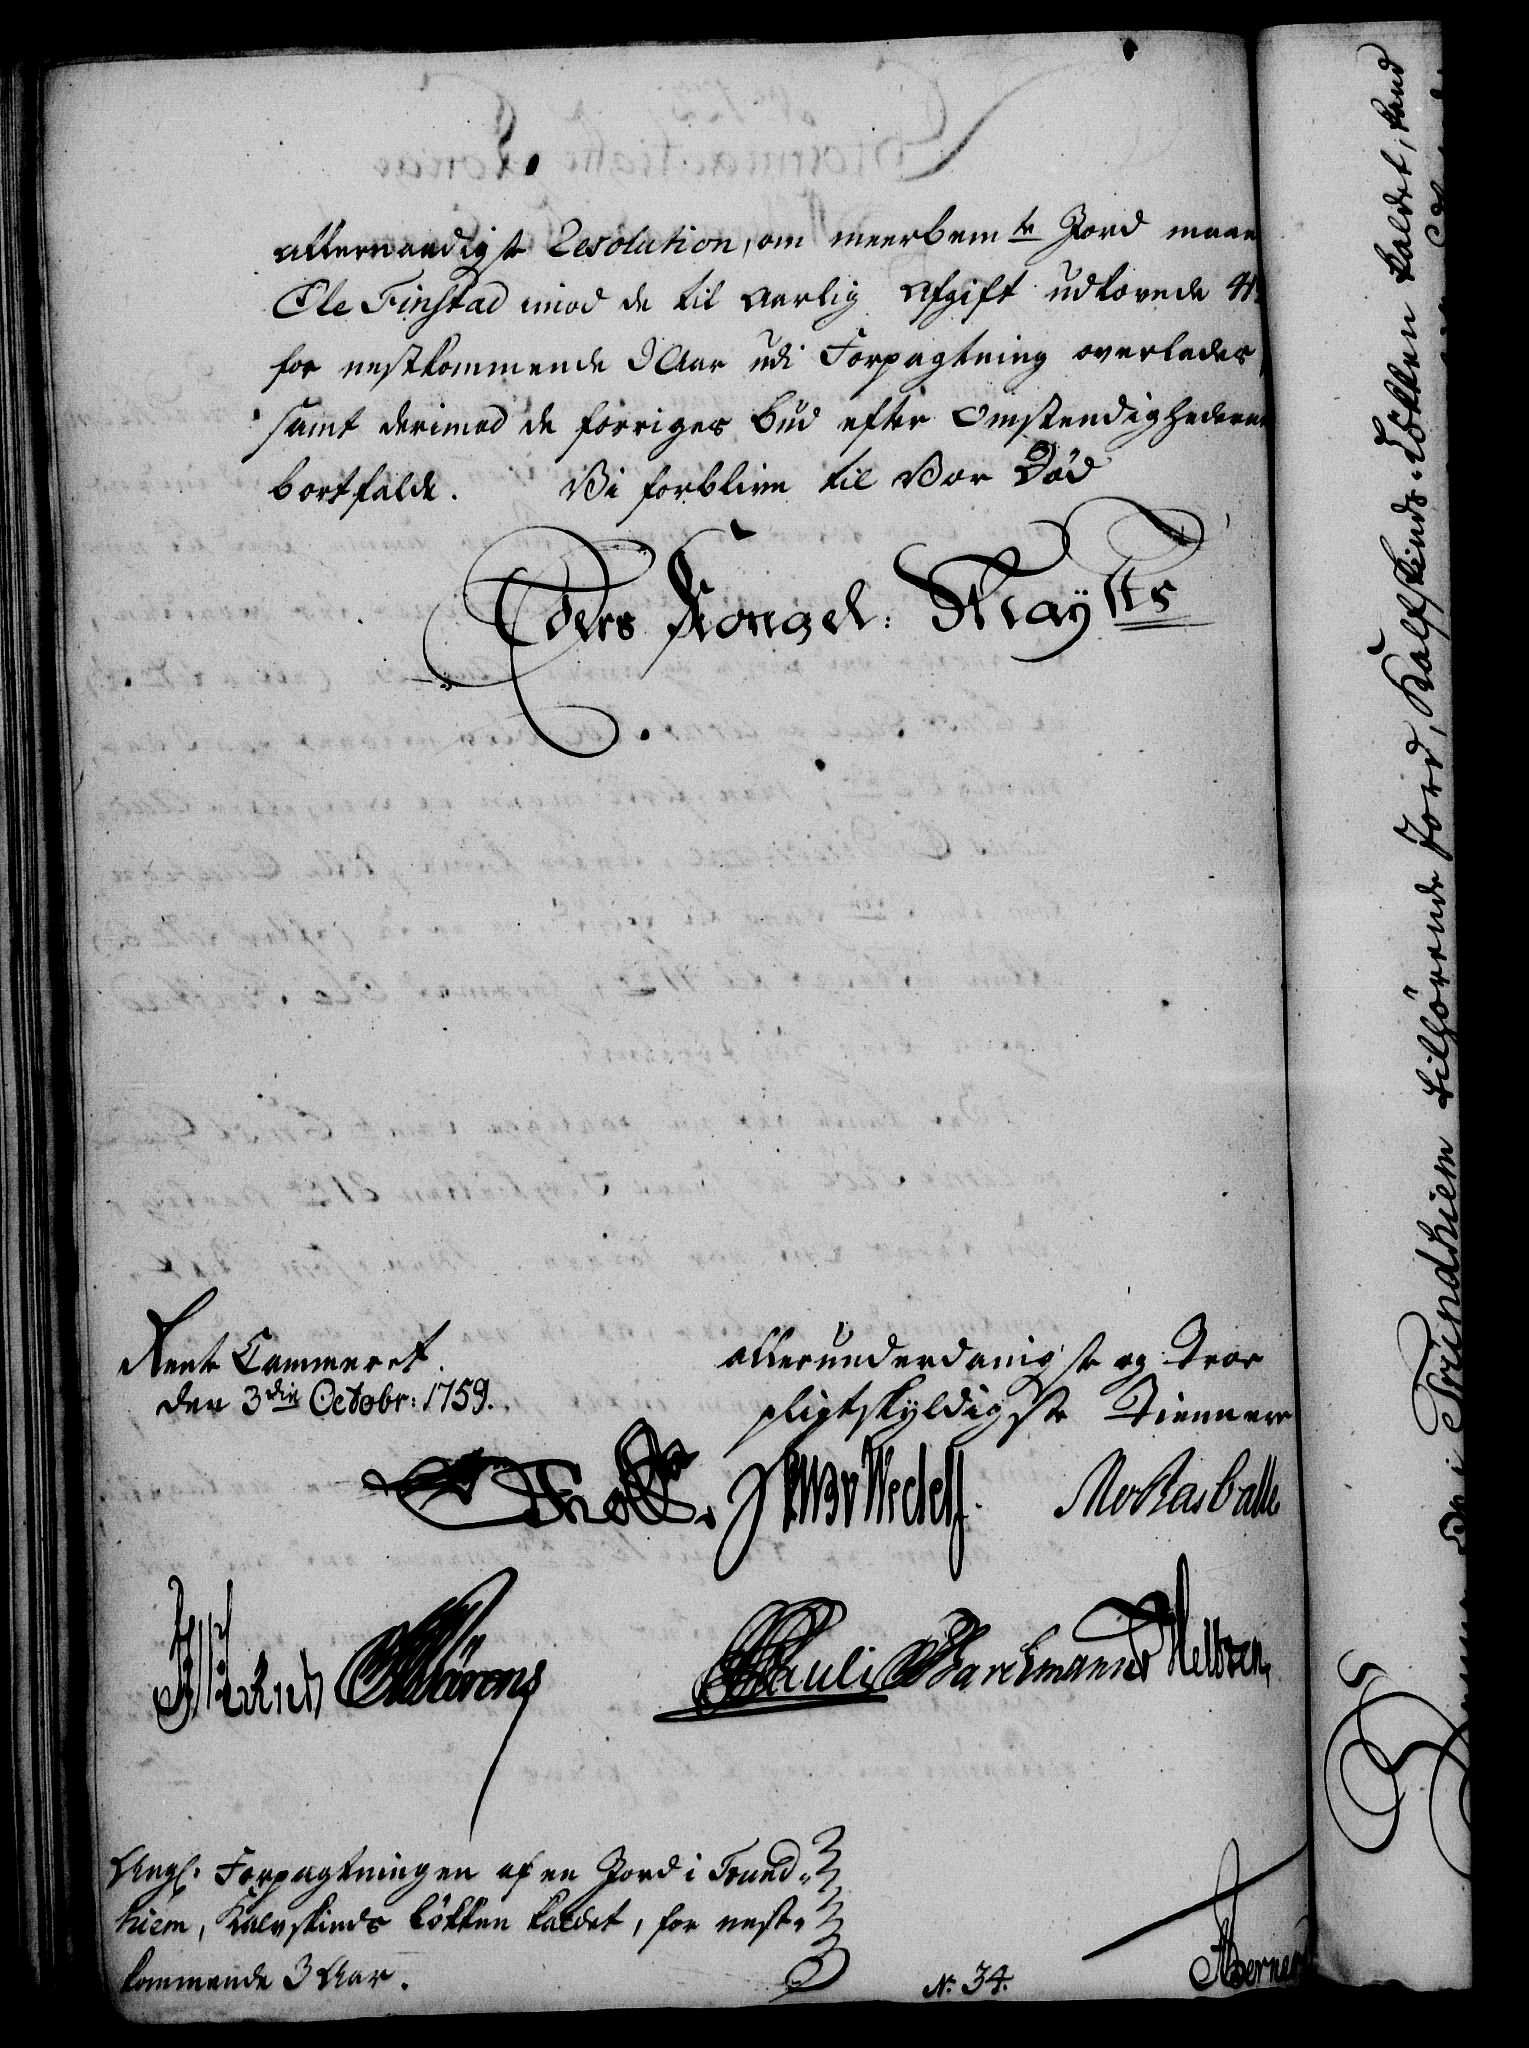 allernaadigste Resolution, om meerbemte Jord maae
Ole Finstad imod de til aarlig Afgift udlovede
for nestkommende 3 Aar udi Forpagtning overlades,
samt derimod de förriges bud efter Omstendighederne
bortfalde. Vi forblive til Vor Död
Eders Kongel: Mayts
Rente Cammeret.
den 3die Octobr: 1759.
allerunderdanigste og Troe
pligtskyldigste Tiennere
Wedell.
Pauli Barchmann
Angl. Forpagtningen af en Jord i Trund-
hiem, Kalvskinds Lökken kaldet, for nest-
kommende 3 Aar.
No. 34.
i Trundhiem tilhörende Jord, Kalfskinds-Lökken kaldet,